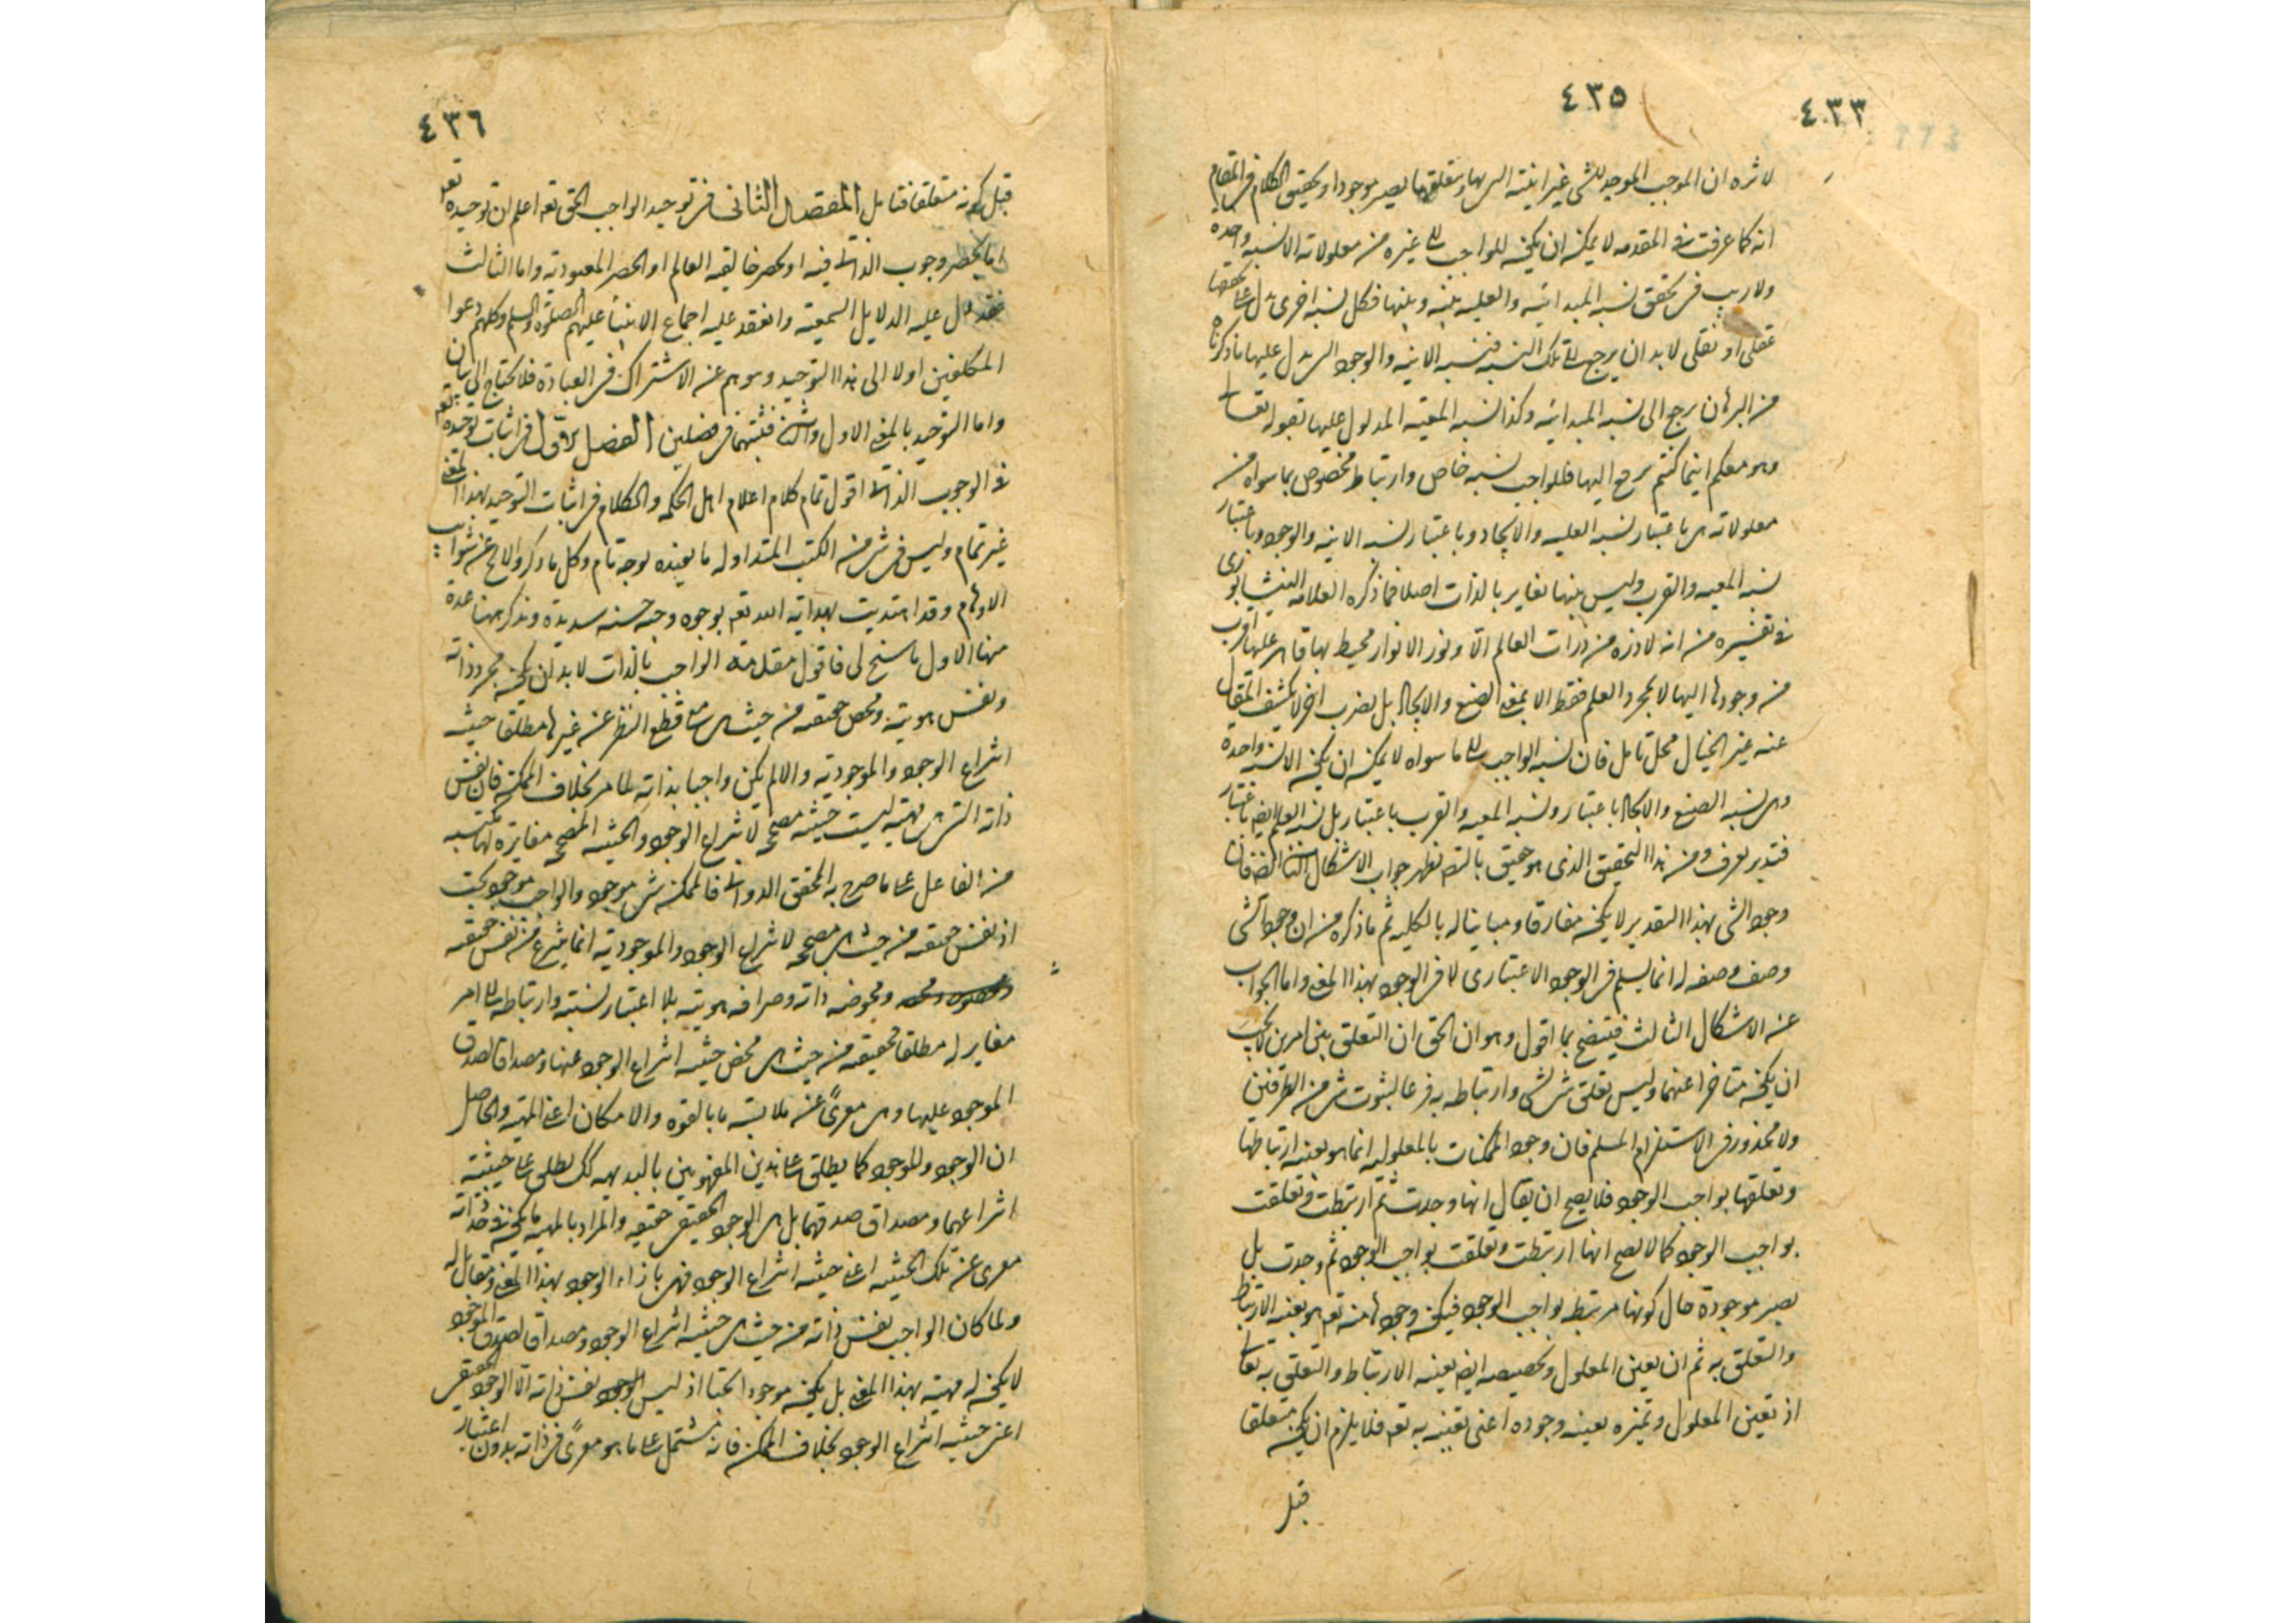 ٤٣٣
٤٣٥
لاثره ان الموجب الموجد للشى غير اينته اليها وبتعلقها يصير موجودا وتحقيق الكلام فى المقام
انه كما عرفت فى المقدمه لا يمكن ان يكون للواجب الى غيره من معلولاته الا نسبه واحده
ولا ريب فى تحقق نسبه المبدائيه والعليه بينه وبينها فكل نسبه اخرى دل على تحققها
عقلى او نقلى لا بد ان يرجع الى تلك النسبه فنسبه الاينيه والوجود الذى يدل عليها ما ذكرناه
من البرهان يرجع الى نسبه المبدائيه وكذا نسبه المعيته المدلول عليها بقوله تعالى
وهو معكم اينما كنتم يرجع اليها فللواجب نسبه خاص وارتباط مخصوص بما سواه من
معلولاته هى باعتبار نسبه العليه والايجاد وباعتبار نسبه الاينيه والوجود وباعتبار
نسبه المعيه والقرب وليس بينها تغاير بالذات اصلا فما ذكره العلامه النيشابورى
فى تفسيره من انه لا ذره من ذرات العالم الا ونور الانوار محيط بها قاهر عليها اقرب
من وجودها اليها لا بمجرد العلم فقط الا بمعنى الصنع والايجاد بل بضرب اخر لا يكشف المقال
عنه غير الخيال محل تامل فان نسبه الواجب الى ما سواه لا يمكن ان يكون الا نسبه واحدة
وهى نسبه الصنع والايجاد باعتبار ونسبه المعيه والقرب باعتبار بل نسبه العلم ايضا باعتبار
فتدبر تعرف ومن هذا التحقيق الذى هو حقيق بالتصديق ظهر جواب الاشكال الثانى ايضا فان
وجود الشى بهذا التقدير لا يكون مفارقا ومباينا له بالكليه ثم ما ذكره من ان وجود الشى
وصف وصفه له انما يسلم فى الوجود الاعتبارى لا فى الوجود بهذا المعنى واما الجواب
عن الاشكال الثالث فيتضح بما اقول وهو ان الحق ان التعلق بين امرين لا يجب
ان يكون متاخرا عنهما وليس تعلق شى لشى وارتباطه به فرعا لثبوت شى من الطرفين
ولا محذور فى الاستلزام المسلم فان وجود الممكنات بالمعلوليه انما هو بعينه ارتباطها
وتعلقها بواجب الوجود فلا يصح ان يقال انها وجدت ثم ارتبطت وتعلقت
بواجب الوجود كما لا يصح انها ارتبطت وتعلقت بواجب الوجود ثم وجدت بل
يصير موجودة حال كونها مرتبطه بواجب الوجود فيكون وجودها منه تعه هو بعينه الارتباط
والتعلق به ثم ان تعين المعلول وتخصيصه ايضا بعينه الارتباط والتعلق به تعالى
اذ تعين المعلول وتميزه بعينه وجوده اعنى تعينه به تعه فلا يلزم ان يكون متعلقا
قبل
٤٣٦
قبل كونه متعلقا فتامل المقصد الثانى فى توحيد الواجب الحق تعه اعلم ان توحيده تعه
اما بحصر وجوب الذاتى فيه او بحصر خالقيه العالم او الحصر المعبوديه واما الثالث
فقد دل عليه الدلايل السمعيه وانعقد عليه اجماع الانبياء عليهم الصلوه والسلم وكلهم دعوا
المكلفين اولا الى هذا التوحيد ونهوهم عن الاشتراك فى العبادة فلا يحتاج الى بيان
واما التوحيد بالمعنى الاول والثانى فنثبتهما فى فصلين الفصل الاول فى اثبات توحيده تعه
فى الوجوب الذاتى اقول تمام كلام اعلام اهل الحكمه والكلام فى اثبات التوحيد بهذا المعنى
غير تمام وليس فى شى من الكتب المتداوله ما يفيده بوجه تام وكل ما ذكروا لا يخلو عن شوايب
الاوهام وقد اهتديت بهدايه الله تعه بوجوه وجيهه حسنه سديدة ونذكر ههنا عدة
منها الاول ما سنح لى فاقول مقدمة الواجب بالذات لا بد ان يكون مجرد ذاته
ونفس هويته ومحض حقيقته من حيث هى مع قطع النظر عن غيرها مطلقا حيثيه
انتزاع الوجود والموجوديه والا لم يكن واجبا بذاته لما مر بخلاف الممكن فان نفس
ذاته التى هى مهيته ليست حيثيه مصححه لانتزاع الوجود والحيثيه المصححه مغايرة لها مكتسبه
من الفاعل على ما صرح به المحقق الدوانى فالممكن شى موجود والواجب موجود بحت
اذ نفس حقيقته من حيث هى مصححه لانتزاع الوجود والموجوديه انما ينتزع من نفس حقيقته
ومحوضه ذاته وصرافه هويته بلا اعتبار نسبته وارتباطه الى امر
مغاير له مطلقا فحقيقته من حيث هى محض حيثيه انتزاع الوجود عنها ومصداق لصدق
الموجود عليها وهى معرىً عن ملابسه ما بالقوه والامكان اعنى المهيه والحاصل
ان الوجود والموجود كما يطلق على هذين المفهومين بالبديهه كك يطلق على حيثيته
انتزاعهما ومصداق صدقهما بل هى الوجود الحقيقى حقيقه والمراد بالمهيه ما يكون فى حد ذاته
معرى عن تلك الحيثيه اعنى حيثيه انتزاع الوجود فهى بازاء الوجود بهذا المعنى ومقابل له
ولما كان الواجب نفس ذاته من حيث هى حيثيه انتزاع الوجود ومصداق لصدق الموجود
لا يكون له مهيه بهذا المعنى بل يكون موجودا بحتا اذ ليس نفس ذاته الا الوجود الحقيقى
اعنى حيثيه انتزاع الوجود بخلاف الممكن فانه مشتمل على ما هو معرىً فى ذاته بدون اعتبار